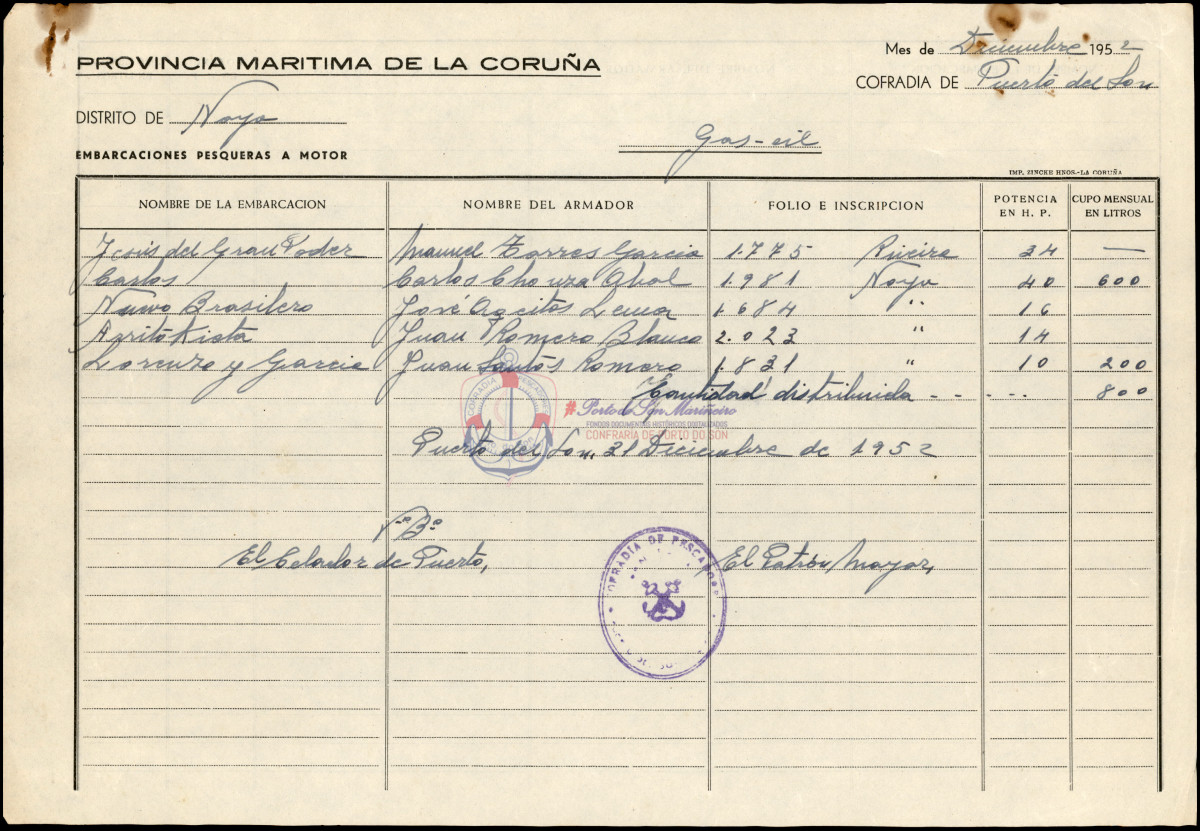 Mes de Diciembre 1952
PROVINCIA MARITIMA DE LA CORUÑA
COFRADIA DE Puerto del Son
DISTRITO DE Noya
Gas-oil
EMBARCACIONES PESQUERAS A MOTOR
IMP. ZINCKE HNOS.-LA CORUÑA
NOMBRE DE LA EMBARCACION NOMBRE DEL ARMADOR FOLIO E INSCRIPCION POTENCIA EN H. P. CUPO MENSUAL EN LITROS
Jesús del Gran Poder Manuel Torres Garcia 1.775 Riveira 34 —
Carlos Carlos Chouza Abal 1.981 Noya 40 600
Nuevo Brasilero José Ageitos Lema 1.684 " 16
Juan Romero Blanco 2.023 " 14
Lorenzo y Garcia Juan Santos Romero 1.831 " 10 200
Cantidad distribuida - - - - - 800
#Porto do Son Mariñeiro
FONDOS DOCUMENTAIS HISTÓRICOS DIXITALIZADOS
CONFRARÍA DE PORTO DO SON
Puerto del Son, 31 Diciembre de 1952
Vº Bº
El Celador de Puerto, El Patrón Mayor,
COFRADIA DE PESCADORES